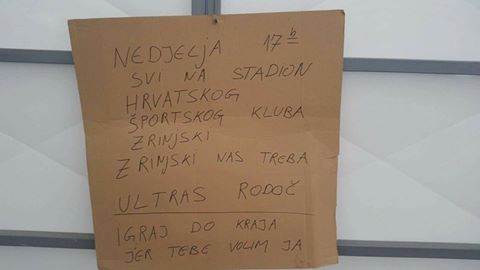 NEDJELJA 17 h
SVI NA STADION
HRVATSKOG
ŠPORTSKOG KLUBA
ZRINJSKI
ZRINJSKI NAS TREBA
ULTRAS RODOČ
IGRAJ DO KRAJA
JER TEBE VOLIM JA